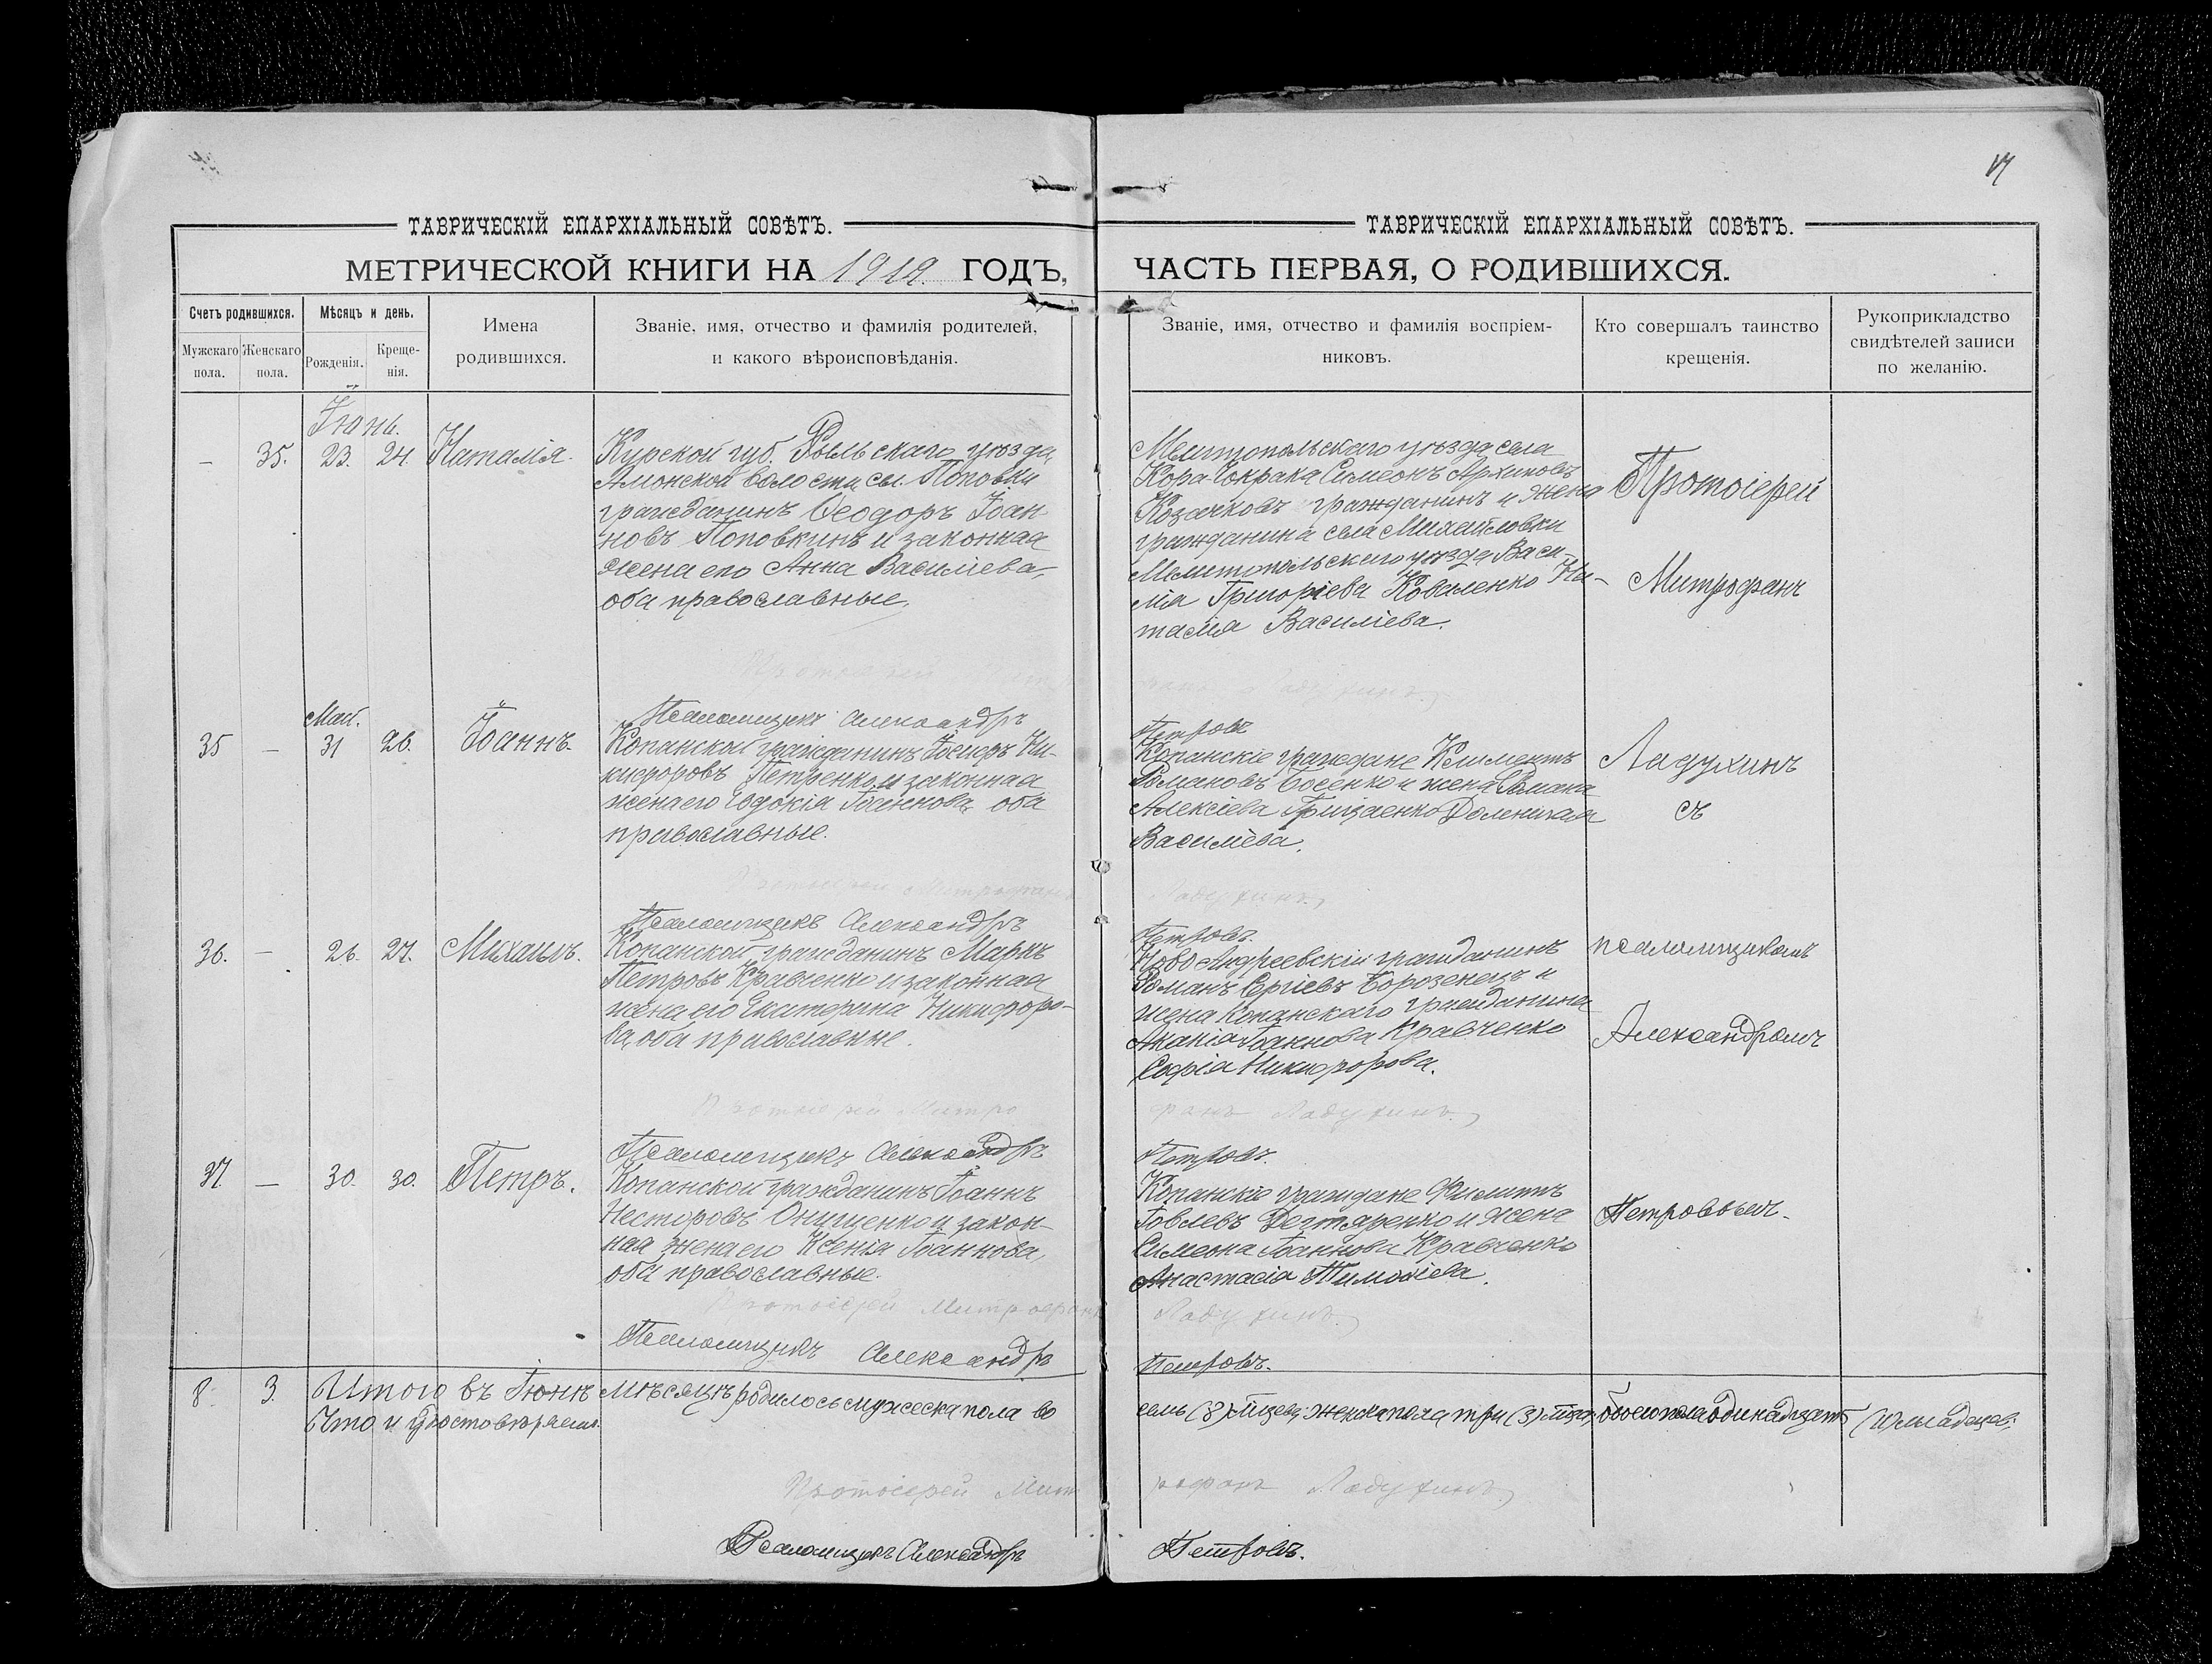 17
ТАВРИЧЕСКІЙ ЕПАРХІАЛЬНЫЙ СОВѢТЪ.
МЕТРИЧЕСКОЙ КНИГИ НА 1919. ГОДЪ,
Счетъ родившихся.
Мѣсяцъ и день.
Имена
родившихся.
Званіе, имя, отчество и фамилія родителей,
и какого вѣроисповѣданія.
Мужскаго
пола.
Женскаго
пола.
Рожденія.
Креще-
нія.
Іюнь.
– 35. 23. 24. Наталія.
Курской губ. Рыльскаго уѣзда,
Амонской волости, сл. Поповки
гражданинъ Ѳеодоръ Іоан
новъ Поповкинъ и законная
жена его Анна Василіева,
оба православные.
Протоіерей
Псаломщикъ Александръ
Май.
35 – 31 26. Іоаннъ.
Копанской гражданинъ Іосифъ Ни-
кифоровъ Петренко и законная
жена его Евдокія Іоаннова, оба
православные.
Протоіерей Митрофанъ
Псаломщикъ Александръ
36. – 26. 27. Михаилъ.
Копанской гражданинъ Маркъ
Петровъ Кравченко и законная
жена его Екатерина Никифоро-
ва, оба православные.
Протоіерей Митро
Псаломщикъ Александръ
37. – 30. 30. Петръ.
Копанской гражданинъ Іоаннъ
Несторовъ Онищенко и закон-
ная жена его Ксенія Іоаннова,
оба православные.
Протоіерей Митрофанъ
Псаломщикъ Александръ
8. 3. Итого въ Іюнѣ мѣсяцѣ родилось мужеска пола во
Что и удостовѣряемъ.
Протоіерей Мит
Псаломщикъ Александръ
ТАВРИЧЕСКІЙ ЕПАРХІАЛЬНЫЙ СОВѢТЪ.
ЧАСТЬ ПЕРВАЯ, О РОДИВШИХСЯ.
Званіе, имя, отчество и фамилія воспріем-
никовъ.
Кто совершалъ таинство
крещенія.
Рукоприкладство
свидѣтелей записи
по желанію.
Мелитопольскаго уѣзда села
Кора-Чокрака Симеонъ Архиповъ
Козачковъ гражданинъ и жена
гражданина села Михайловки
Мелитопольскаго уѣзда Васи-
лія Григоріева Коваленко На-
талія Василіева.
Ладухинъ
Петровъ
Копанскіе граждане Климентъ
Романовъ Босенко и жена Романа
Алексіева Грицаенко Домникія
Василіева.
Ладухинъ
Петровъ.
Ново Андреевскій гражданинъ
Романъ Сергіевъ Борозенецъ и
жена Копанскаго гражданина
Акакія Іоаннова Кравченко
Софія Никифорова.
фанъ Ладухинъ
Петровъ.
Копанскіе граждане Филиппъ
Іовлевъ Дегтяренко и жена
Симеона Іоаннова Кравченко
Анастасія Тимоѳіева.
Ладухинъ
Петровъ.
семь (8) женска пола три (3) обоего пола одинадцать (11) младецевъ;
рофанъ Ладухинъ
Петровъ.
Протоіерей
Митрофанъ
Ладухинъ
съ
псаломщикомъ
Александромъ
Петровымъ.